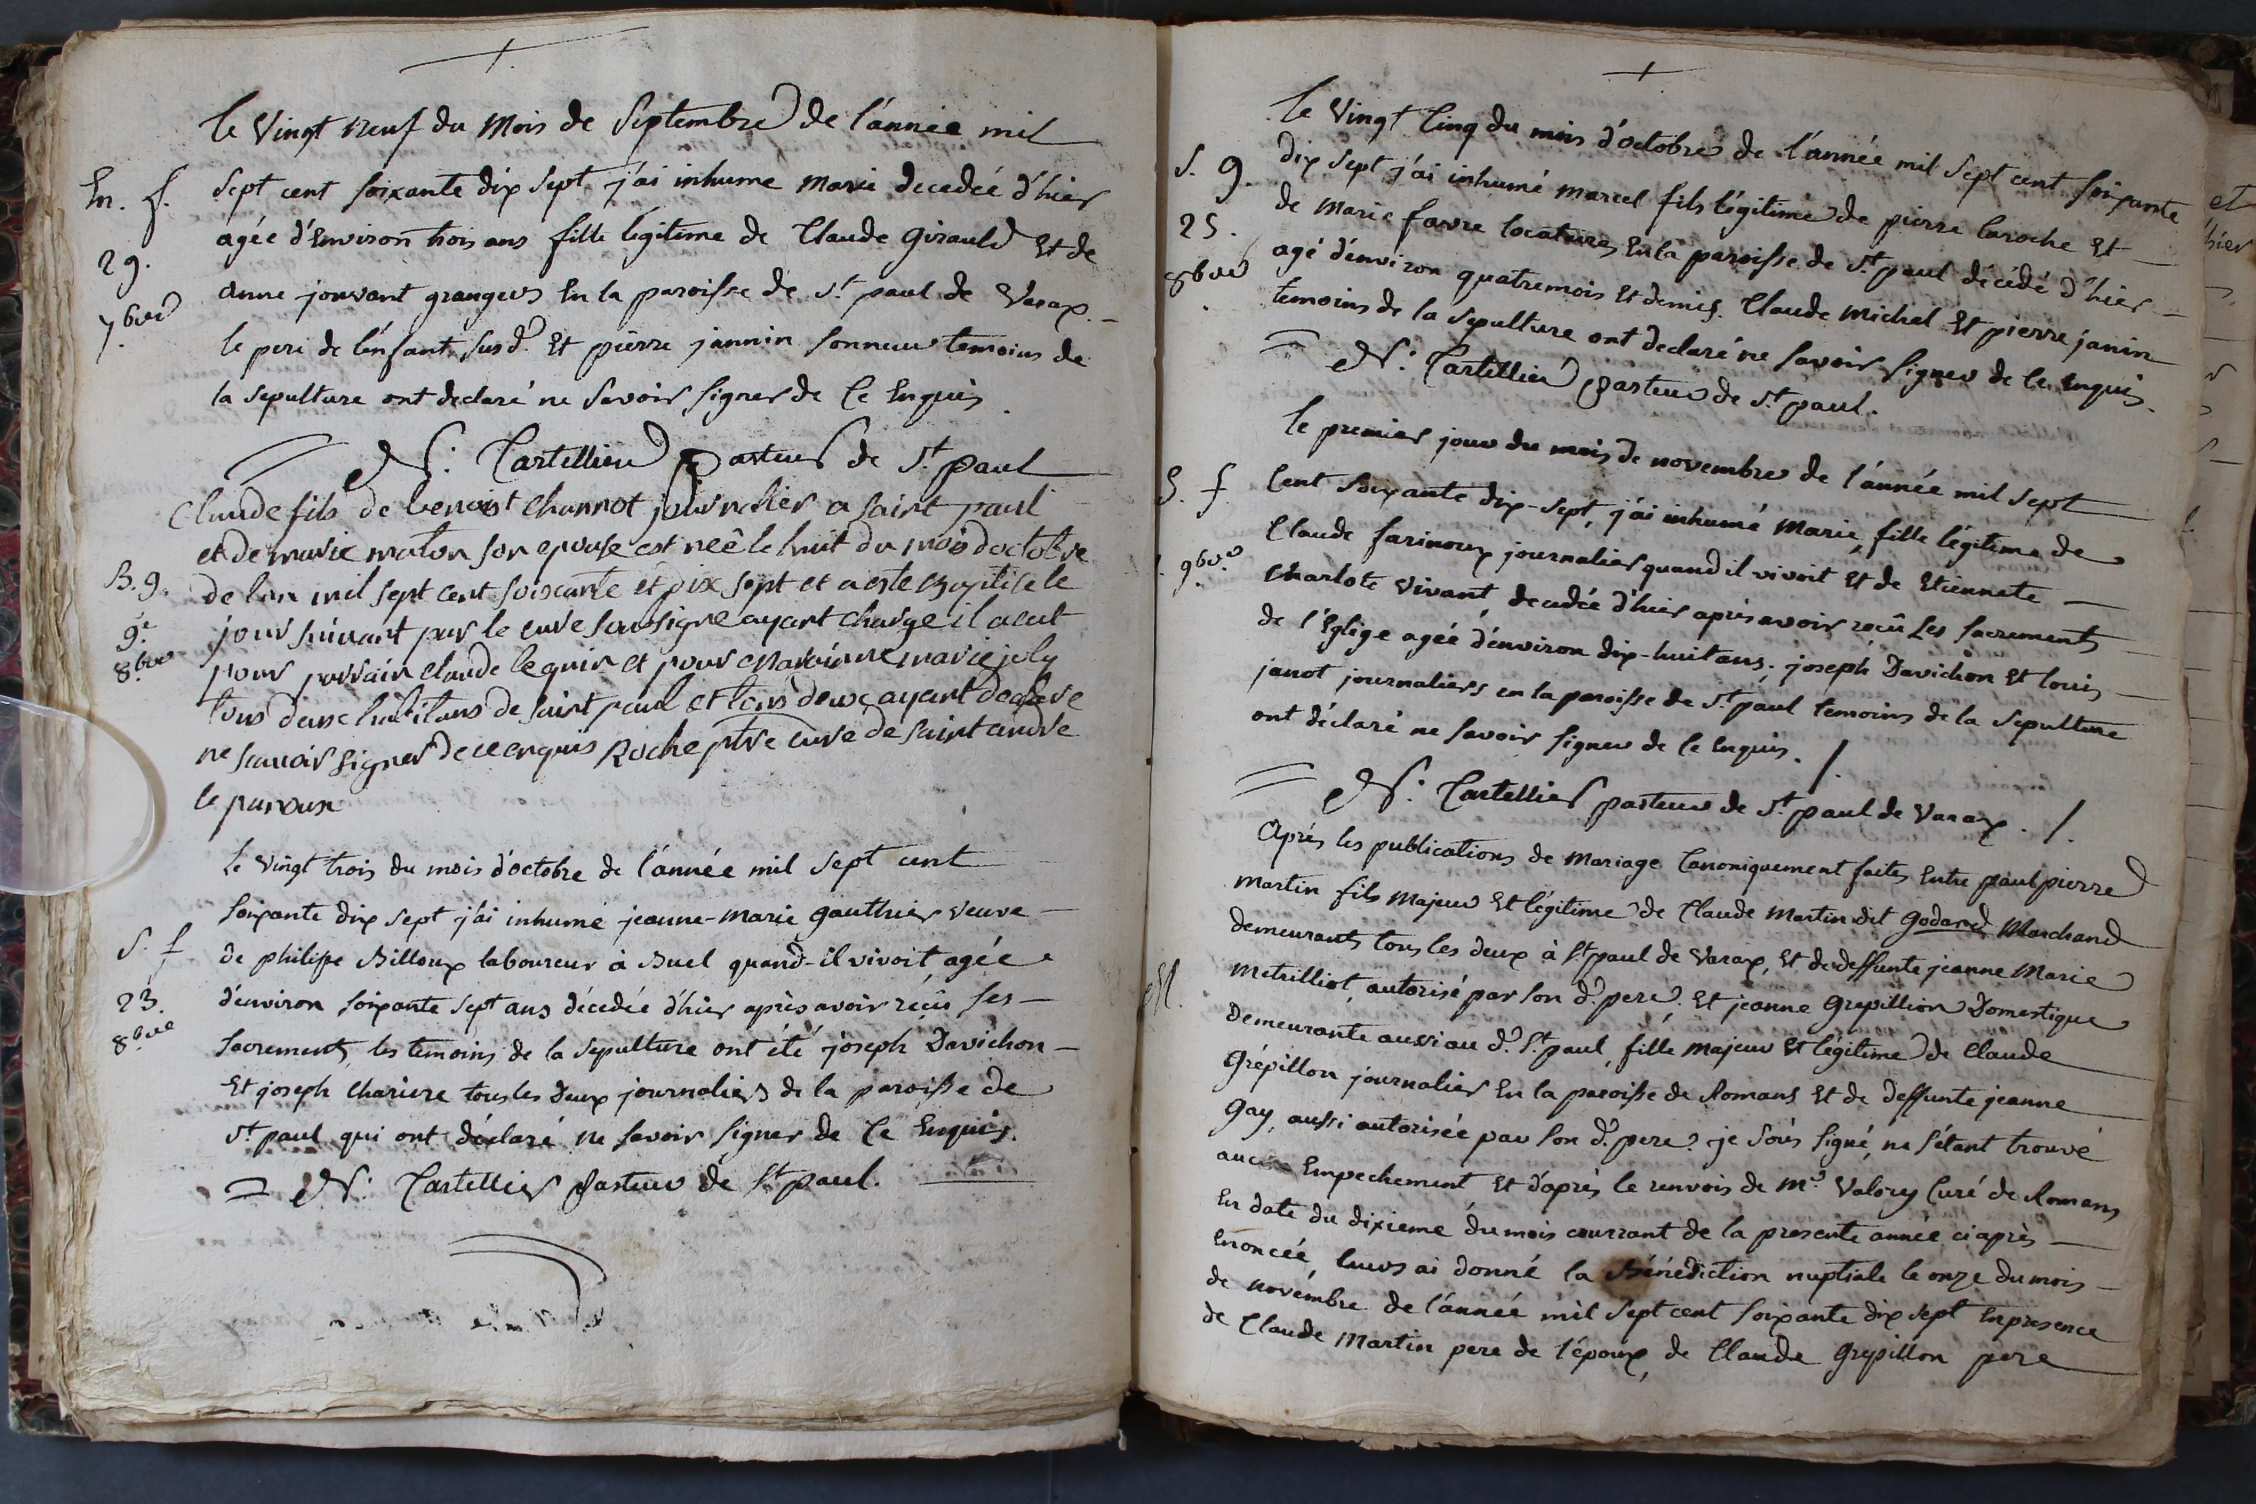 le Vingt neuf du Mois de Septembre de l'année mil
En. f. sept cent soixante dix sept j'ai inhumé Marie decedée d'hier
agée d'Environ trois ans fille légitime de Claude Girauld Et de
29.
anne jouvant grangers En la paroisse de St paul de Varax.
7bre
le pere de l'enfant susd. Et pierre jannin sonneur temoins de
la sepulture ont declaré ne savoir signer de Ce Enquis
N: Cartellier Pasteur de St paul
Claude fils de benoist Channot journalier a saint paul
et de marie maton son epouse est neê le huit du mois doctobre
B. g. de lan mil sept cent soixante et dix sept et a este Baptise le
9e jour suivant par le cure soussigne ayant charge il a eut
8bre pour parrain claude lequin et pour marainne marie joly
tous deux habitans de saint paul et tous deux ayant declare
ne scavoir signer de ce enquis Roche ptre cure de saint andre
le panoux
Le Vingt trois du mois d'octobre de l'année mil sept cent
soixante dix sept j'ai inhumé jeanne-Marie gauthier veuve
S. f de philipe Billoux laboureur à Buel quand-il vivoit, agée
23. d'environ soixante sept ans décedée d'hier après avoir réçu ses
8bre
sacrements, les temoins de la sepulture ont été joseph Davichon
Et joseph chariere tous les deux journaliers de la paroisse de
St paul qui ont déclaré ne savoir signer de Ce Enquis.
N: Cartellier Pasteur de St paul.
le Vingt Cinq du mois d'octobre de l'année mil sept cent soixante
S. g. dix sept j'ai inhumé marcel fils légitime de pierre laroche Et
25. de Marie favre locataires En la paroisse de St paul décédé d'hier
8bre agé d'environ quatre mois Et demis. Claude Michel Et pierre janin
temoins de la sepulture ont declaré ne savoir signer de Ce Enquis.
N: Cartellier Pasteur de St paul.
le premier jour du mois de novembre de l'année mil sept
S. f Cent soixante dix-sept, j'ai inhumé Marie, fille légitime de
Claude farinoux journalier quand il vivoit Et de Etiennete
9bre
Charlote Vivant, decedée d'hier après avoir reçû Les sacrements
de l'Eglige agée d'environ dix-huit ans; joseph Davichon Et louis
janot journaliers en la paroisse de St paul temoins de la sepulture
ont déclaré ne savoir signer de Ce Enquis. /.
N: Cartellier pasteur de St paul de Varax. /.
Après les publications de Mariage Canoniquement faites Entre paul pierre
Martin fils Majeur Et légitime de Claude Martin dit Godard Marchand
demeurants tous les deux à St paul de Varax, Et de deffunte jeanne Marie
M. Metrilliot, autorisé par son d. pere, Et jeanne Grepillion Domestique
Demeurante aussi au d. St paul, fille majeur Et légitime de Claude
Grépillon journalier En la paroisse de Romans Et de Deffunte jeanne
Gay, aussi autorisée par son d. pere. je soûs signé, ne s'étant trouvé
aucun Empechement Et d'après le renvois de Mr Valory Curé de Romans
En date du dixieme du mois courrant de la presente année ci après
Enoncée, leurs ai donné la Bénédiction nuptiale le onze du mois
de novembre de l'année mil sept cent soixante dix sept En presence
de Claude Martin pere de l'époux, de Claude Grepillon pere